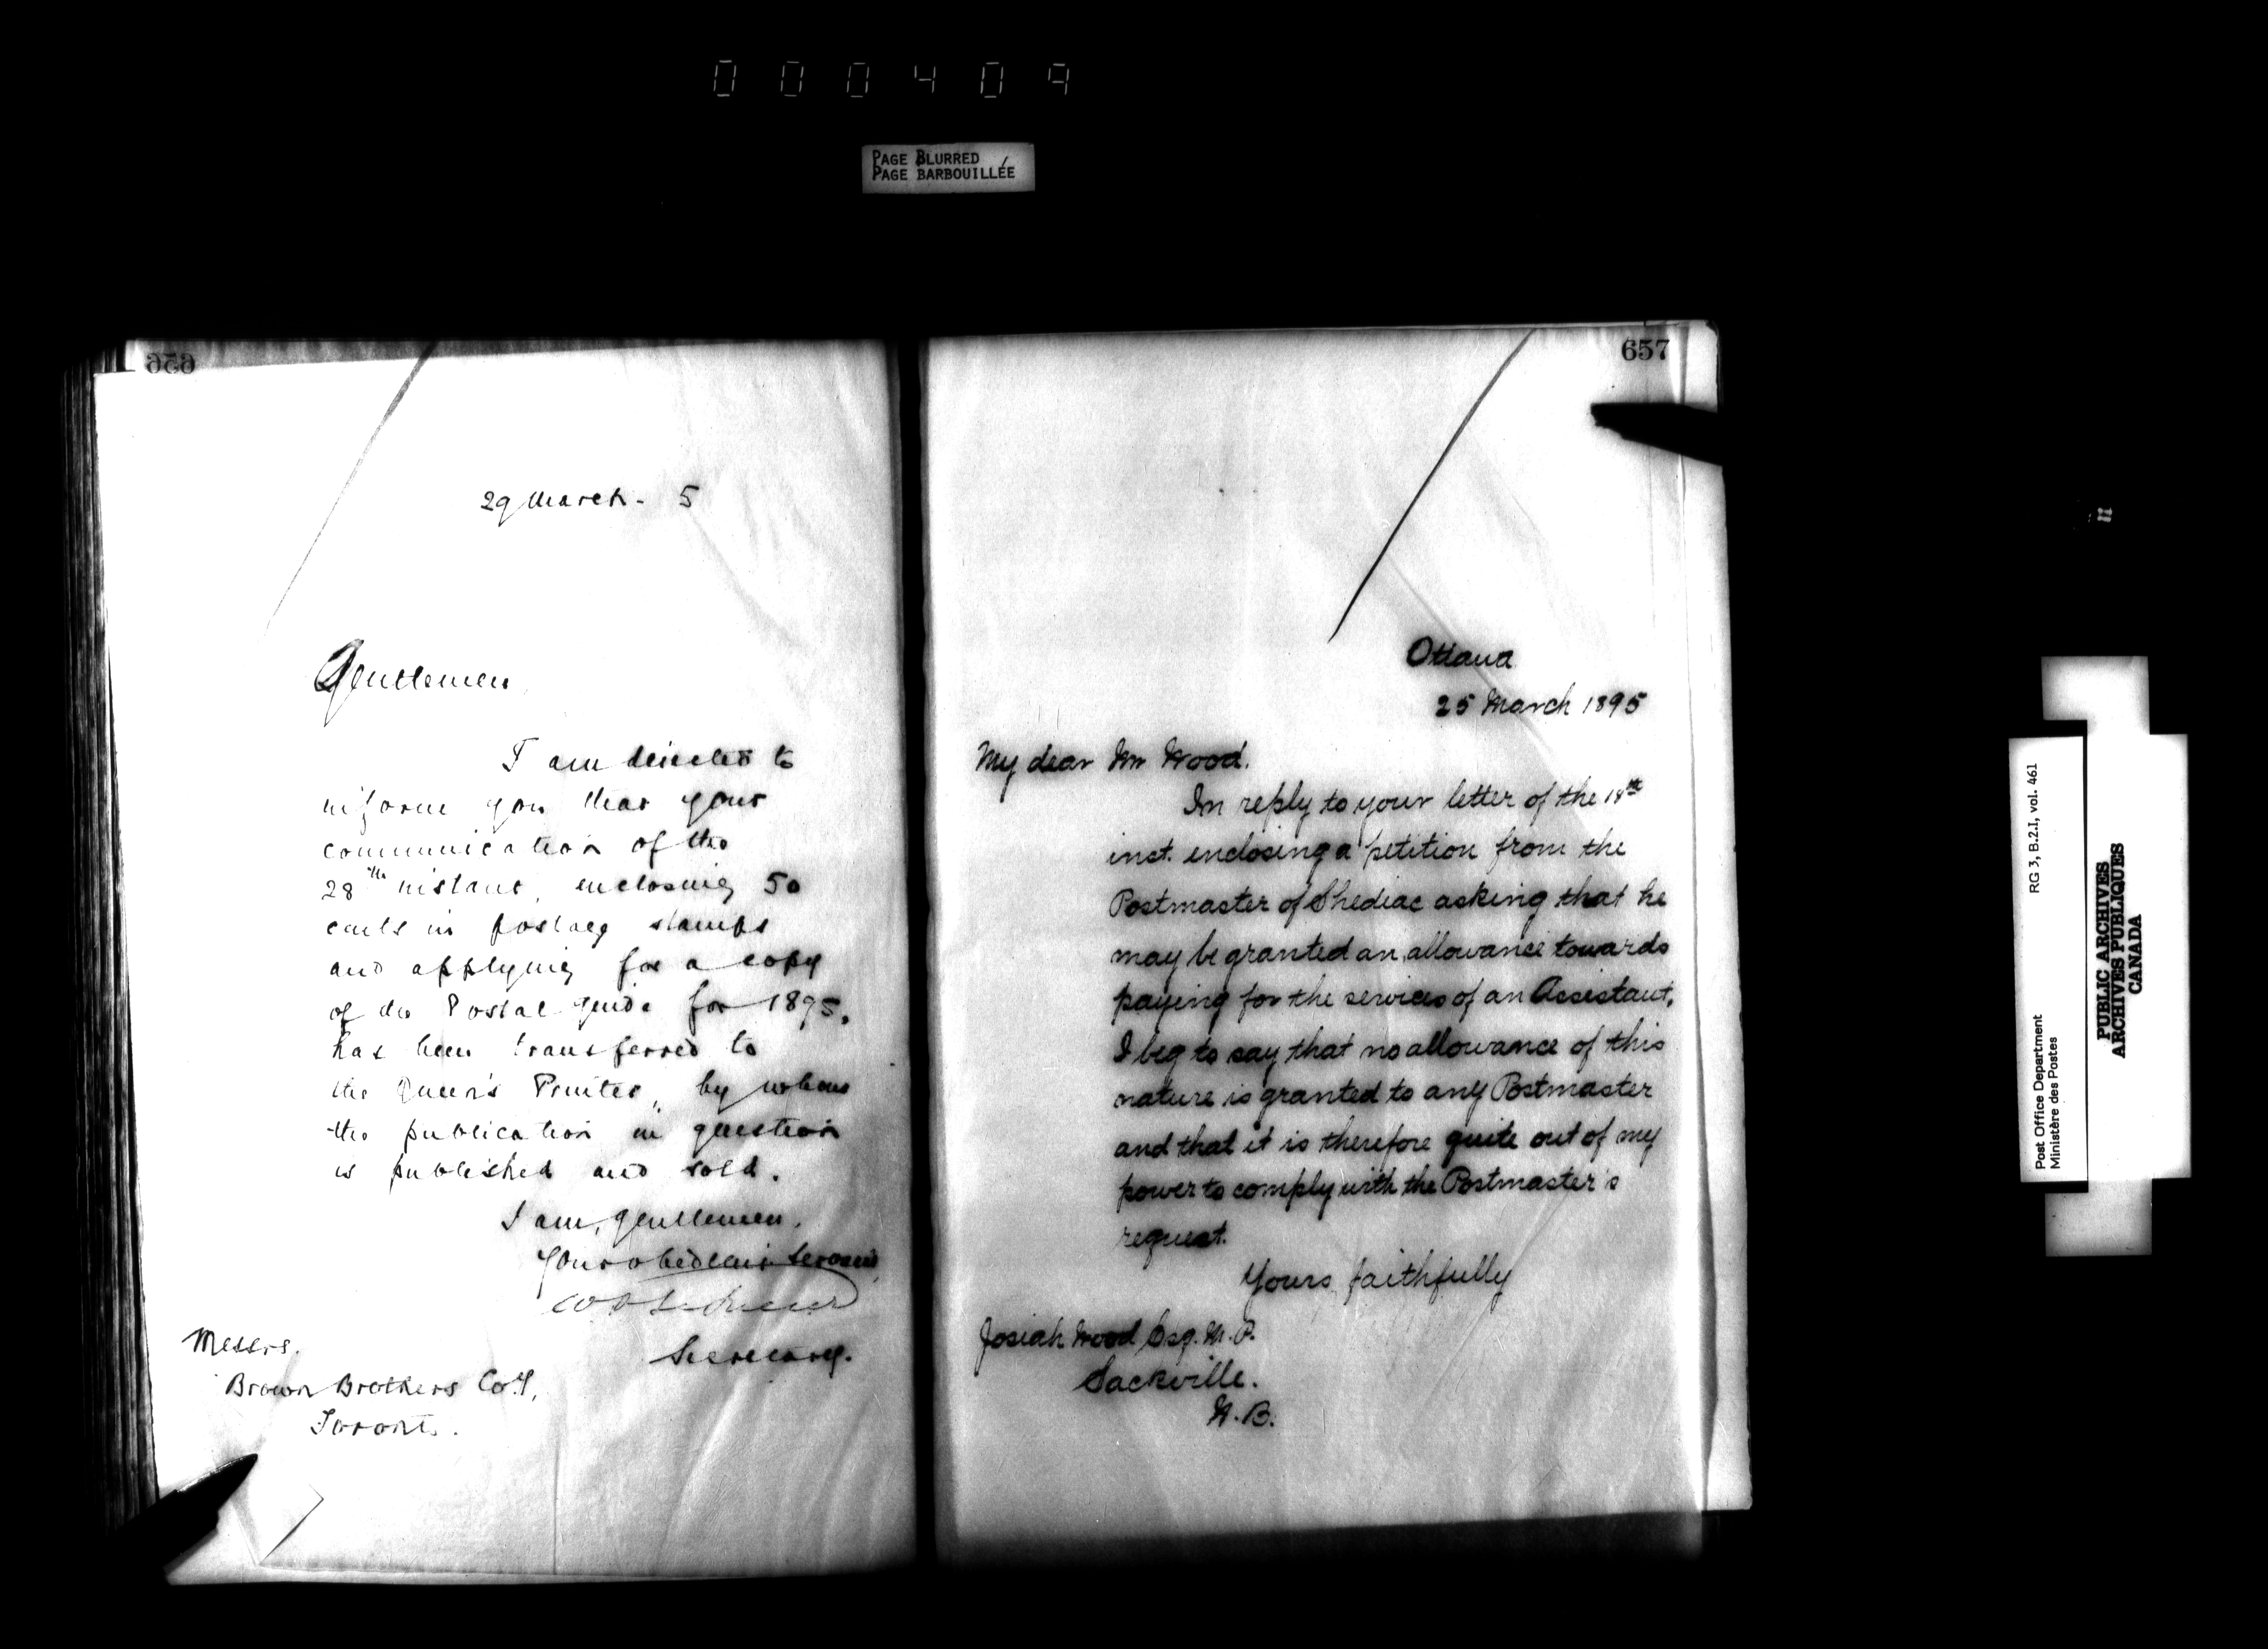 000409
PAGE BLURRED
PAGE BARBOUILLÉE
656
29 March - 5
Gentlemen,
I am directed to
inform you that your
communication of the
28th instant, enclosing 50
cents in postage stamps
and applying for a copy
of the Postal guide for 1895,
has been transferred to
the Queen's Printer, by whom
the publication in question
is published and sold.
I am, gentlemen,
Your obedient Servant,
Secretary.
Messrs.
Brown Brothers Coy,
Toronto.
657
Ottawa
25 March 1895
My dear Mr Wood.
In reply to your letter of the 18th
inst. enclosing a petition from the
Postmaster of Shediac asking that he
may be granted an allowance towards
paying for the services of an Assistant,
I beg to say that no allowance of this
nature is granted to any Postmaster
and that it is therefore quite out of my
power to comply with the Postmaster's
request.
Yours faithfully
Josiah Wood Esq. M.P.
Sackville.
N.B.
Post Office Department
Ministère des Postes
RG 3, B.2.I, vol. 461
PUBLIC ARCHIVES
ARCHIVES PUBLIQUES
CANADA